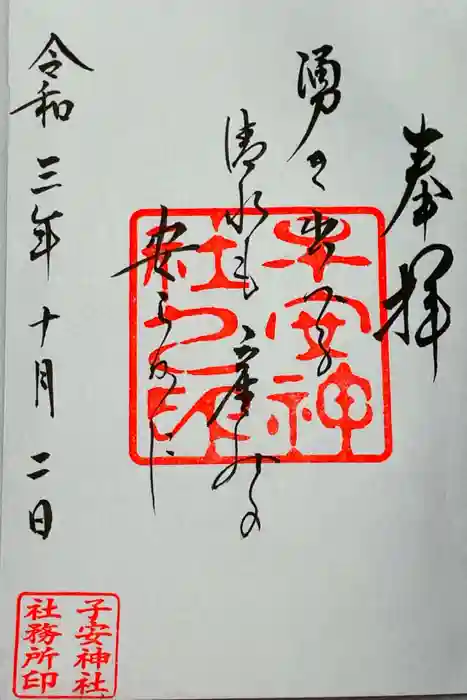 奉拝
湧き出づる
清水も産みの
安らけに
令和三年十月二日
子安神社之印
子安神社
社務所印